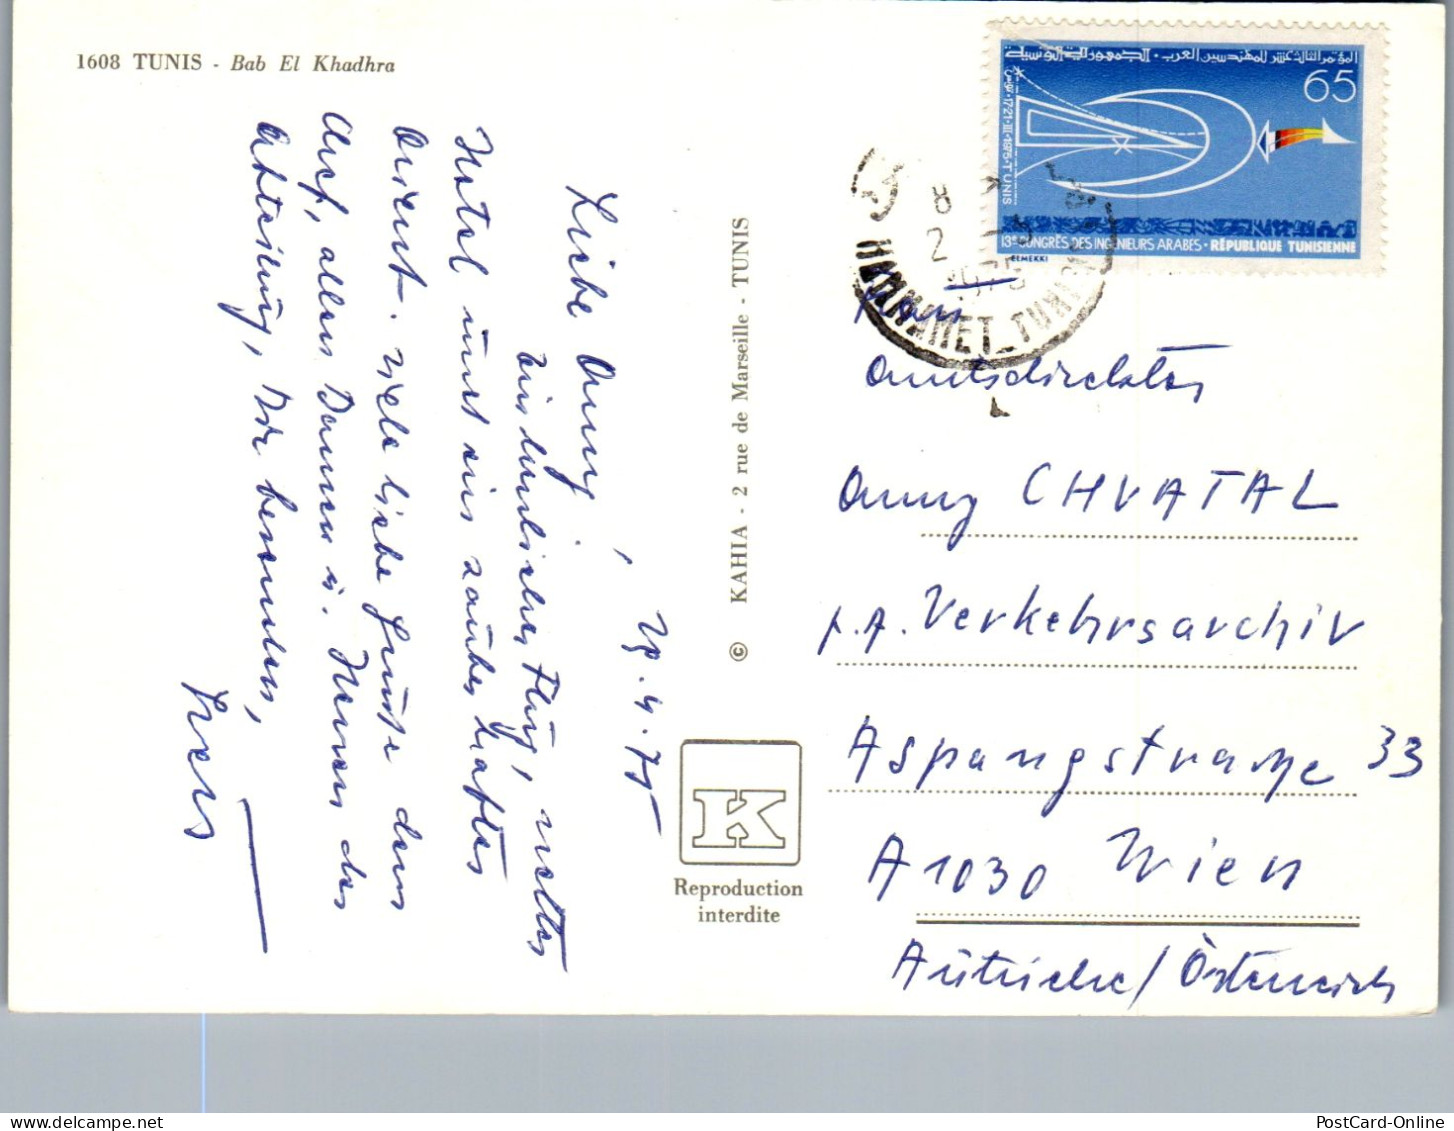 1608 TUNIS - Bab El Khadhra
المؤتمر الثالث عشر للمهندسين العرب - الجمهورية التونسية
65
تونس 17-21-III-1975-TUNIS
13e CONGRÈS DES INGÉNIEURS ARABES - RÉPUBLIQUE TUNISIENNE
ELMEKKI
HAMMAMET_TUNISIE
8
2 5
1975
28.4.75
Liebe Anny!
Ein herrlicher Flug, nettes
Hotel und ein zauberhaftes
Orient. Viele liebe Grüße dem
Chef, allen Damen u. Herren der
Abteilung, Dir besonders,
© KAHIA - 2 rue de Marseille - TUNIS
K
Reproduction
interdite
Frau
Amtsdirektor
Anny CHVATAL
Verkehrsarchiv
Aspangstraße 33
A 1030 Wien
Autriche / Österreich
PostCard-Online